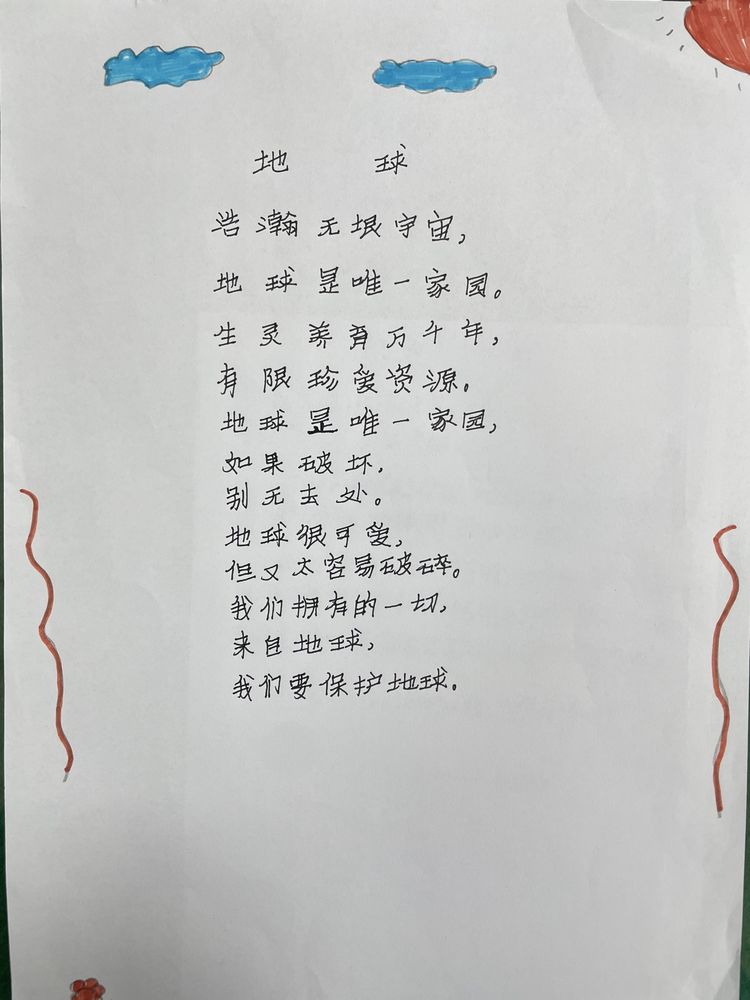 地 球
浩瀚无垠宇宙，
地球是唯一家园。
生灵养育万千年，
有限珍爱资源。
地球是唯一家园，
如果破坏，
别无去处。
地球很可爱，
但又太容易破碎。
我们拥有的一切，
来自地球，
我们要保护地球。